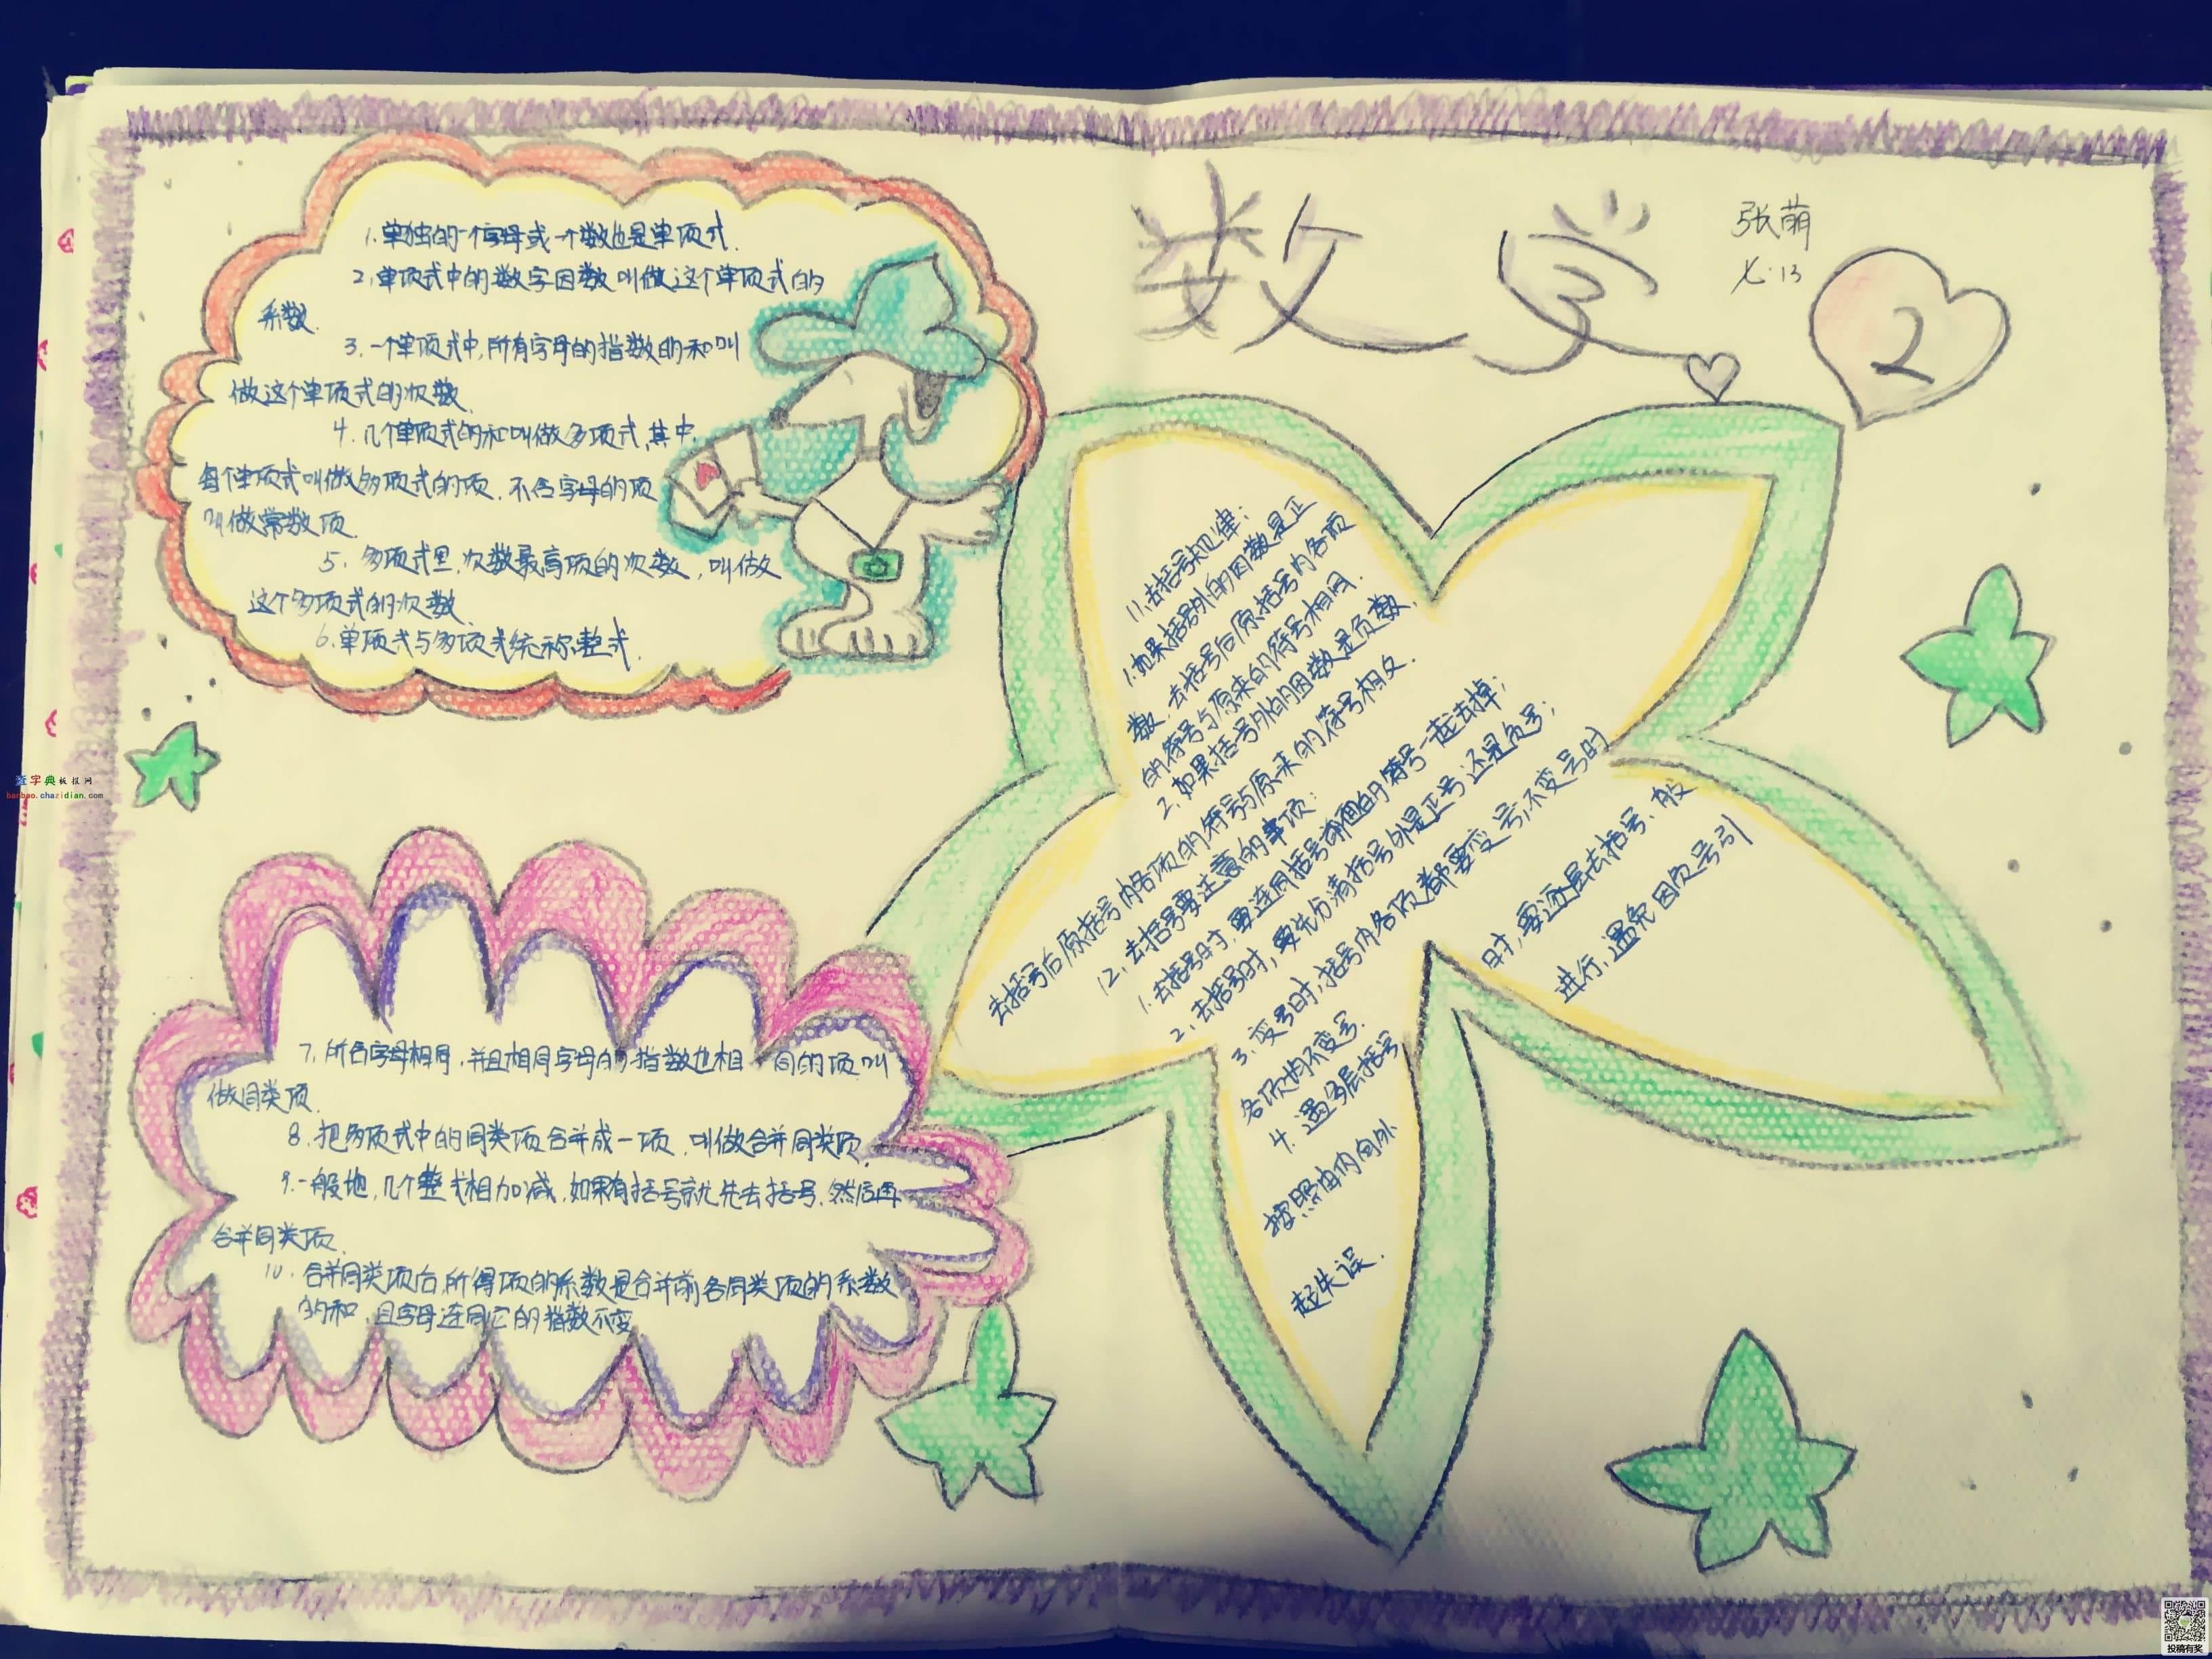 数学
张萌
七.13
2
1.单独的一个字母或一个数也是单项式.
2.单项式中的数字因数叫做这个单项式的
系数.
3.一个单项式中,所有字母的指数的和叫
做这个单项式的次数.
4.几个单项式的和叫做多项式,其中,
每个单项式叫做多项式的项.不含字母的项
叫做常数项.
5.多项式里,次数最高项的次数,叫做
这个多项式的次数.
6.单项式与多项式统称整式.
7.所含字母相同,并且相同字母的指数也相同的项叫
做同类项.
8.把多项式中的同类项合并成一项,叫做合并同类项.
9.一般地,几个整式相加减,如果有括号就先去括号,然后再
合并同类项.
10.合并同类项后,所得项的系数是合并前各同类项的系数
的和,且字母连同它的指数不变
11.去括号规律:
1.如果括号外的因数是正
数,去括号后原括号内各项
的符号与原来的符号相同.
2.如果括号外的因数是负数,
去括号后原括号内各项的符号与原来的符号相反.
12.去括号要注意的事项:
1.去括号时,要连同括号前面的符号一起去掉;
2.去括号时,要先分清括号外是正号还是负号;
3.变号时,括号内各项都要变号,不变号时
各项均不变号.
4.遇多层括号时,要逐层去括号,一般
按照由内向外进行,避免因负号引
起失误.
查字典板报网
banbao.chazidian.com
投稿有奖